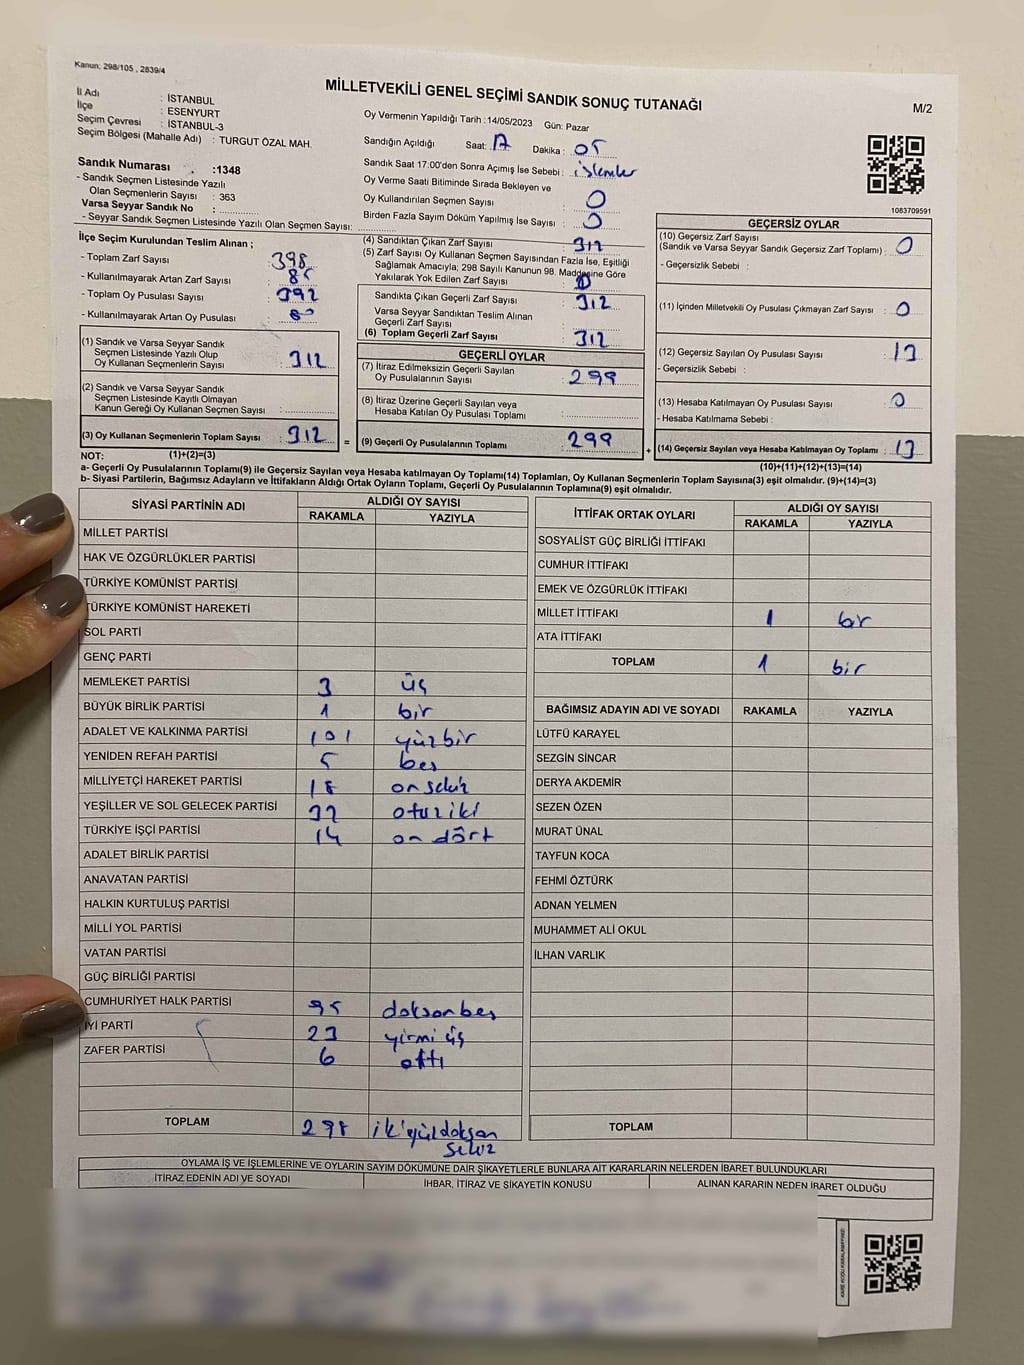 Kanun: 298/105 , 2839/4
MİLLETVEKİLİ GENEL SEÇİMİ SANDIK SONUÇ TUTANAĞI
M/2
İl Adı : İSTANBUL
İlçe : ESENYURT
Seçim Çevresi : İSTANBUL-3
Seçim Bölgesi (Mahalle Adı) : TURGUT ÖZAL MAH.
Sandık Numarası :1348
- Sandık Seçmen Listesinde Yazılı
Olan Seçmenlerin Sayısı : 363
Varsa Seyyar Sandık No :
- Seyyar Sandık Seçmen Listesinde Yazılı Olan Seçmen Sayısı:
Oy Vermenin Yapıldığı Tarih :14/05/2023 Gün: Pazar
Sandığın Açıldığı Saat: 17 Dakika : 05
Sandık Saat 17:00'den Sonra Açımış İse Sebebi : işlemler
Oy Verme Saati Bitiminde Sırada Bekleyen ve
Oy Kullandırılan Seçmen Sayısı : 0
Birden Fazla Sayım Döküm Yapılmış İse Sayısı : 0
1083709591
İlçe Seçim Kurulundan Teslim Alınan ;
- Toplam Zarf Sayısı : 398
- Kullanılmayarak Artan Zarf Sayısı : 85
- Toplam Oy Pusulası Sayısı : 392
- Kullanılmayarak Artan Oy Pusulası : 80
(1) Sandık ve Varsa Seyyar Sandık
Seçmen Listesinde Yazılı Olup
Oy Kullanan Seçmenlerin Sayısı : 312
(2) Sandık ve Varsa Seyyar Sandık
Seçmen Listesinde Kayıtlı Olmayan
Kanun Gereği Oy Kullanan Seçmen Sayısı :
(3) Oy Kullanan Seçmenlerin Toplam Sayısı : 312 =
(4) Sandıktan Çıkan Zarf Sayısı : 312
(5) Zarf Sayısı Oy Kullanan Seçmen Sayısından Fazla İse, Eşitliği
Sağlamak Amacıyla; 298 Sayılı Kanunun 98. Maddesine Göre
Yakılarak Yok Edilen Zarf Sayısı : 0
Sandıkta Çıkan Geçerli Zarf Sayısı : 312
Varsa Seyyar Sandıktan Teslim Alınan
Geçerli Zarf Sayısı :
(6) Toplam Geçerli Zarf Sayısı : 312
GEÇERLİ OYLAR
(7) İtiraz Edilmeksizin Geçerli Sayılan
Oy Pusulalarının Sayısı : 299
(8) İtiraz Üzerine Geçerli Sayılan veya
Hesaba Katılan Oy Pusulası Toplamı :
(9) Geçerli Oy Pusulalarının Toplamı : 299 +
GEÇERSİZ OYLAR
(10) Geçersiz Zarf Sayısı
(Sandık ve Varsa Seyyar Sandık Geçersiz Zarf Toplamı) : 0
- Geçersizlik Sebebi :
(11) İçinden Milletvekili Oy Pusulası Çıkmayan Zarf Sayısı : 0
(12) Geçersiz Sayılan Oy Pusulası Sayısı : 13
- Geçersizlik Sebebi :
(13) Hesaba Katılmayan Oy Pusulası Sayısı : 0
- Hesaba Katılmama Sebebi :
(14) Geçersiz Sayılan veya Hesaba Katılmayan Oy Toplamı : 13
NOT: (1)+(2)=(3)
(10)+(11)+(12)+(13)=(14)
a- Geçerli Oy Pusulalarının Toplamı(9) ile Geçersiz Sayılan veya Hesaba katılmayan Oy Toplamı(14) Toplamları, Oy Kullanan Seçmenlerin Toplam Sayısına(3) eşit olmalıdır. (9)+(14)=(3)
b- Siyasi Partilerin, Bağımsız Adayların ve İttifakların Aldığı Ortak Oyların Toplamı, Geçerli Oy Pusulalarının Toplamına(9) eşit olmalıdır.
SİYASİ PARTİNİN ADI
ALDIĞI OY SAYISI
RAKAMLA YAZIYLA
MİLLET PARTİSİ
HAK VE ÖZGÜRLÜKLER PARTİSİ
TÜRKİYE KOMÜNİST PARTİSİ
TÜRKİYE KOMÜNİST HAREKETİ
SOL PARTİ
GENÇ PARTİ
MEMLEKET PARTİSİ 3 üç
BÜYÜK BİRLİK PARTİSİ 1 bir
ADALET VE KALKINMA PARTİSİ 101 yüzbir
YENİDEN REFAH PARTİSİ 5 beş
MİLLİYETÇİ HAREKET PARTİSİ 18 onsekiz
YEŞİLLER VE SOL GELECEK PARTİSİ 32 otuziki
TÜRKİYE İŞÇİ PARTİSİ 14 on dört
ADALET BİRLİK PARTİSİ
ANAVATAN PARTİSİ
HALKIN KURTULUŞ PARTİSİ
MİLLİ YOL PARTİSİ
VATAN PARTİSİ
GÜÇ BİRLİĞİ PARTİSİ
CUMHURİYET HALK PARTİSİ 95 doksanbeş
İYİ PARTİ 23 yirmi üç
ZAFER PARTİSİ 6 altı
TOPLAM 298 ikiyüzdoksan
sekiz
İTTİFAK ORTAK OYLARI
ALDIĞI OY SAYISI
RAKAMLA YAZIYLA
SOSYALİST GÜÇ BİRLİĞİ İTTİFAKI
CUMHUR İTTİFAKI
EMEK VE ÖZGÜRLÜK İTTİFAKI
MİLLET İTTİFAKI 1 bir
ATA İTTİFAKI
TOPLAM 1 bir
BAĞIMSIZ ADAYIN ADI VE SOYADI RAKAMLA YAZIYLA
LÜTFÜ KARAYEL
SEZGİN SİNCAR
DERYA AKDEMİR
SEZEN ÖZEN
MURAT ÜNAL
TAYFUN KOCA
FEHMİ ÖZTÜRK
ADNAN YELMEN
MUHAMMET ALİ OKUL
İLHAN VARLIK
TOPLAM
OYLAMA İŞ VE İŞLEMLERİNE VE OYLARIN SAYIM DÖKÜMÜNE DAİR ŞİKAYETLERLE BUNLARA AİT KARARLARIN NELERDEN İBARET BULUNDUKLARI
İTİRAZ EDENİN ADI VE SOYADI İHBAR, İTİRAZ VE ŞİKAYETİN KONUSU ALINAN KARARIN NEDEN İBARET OLDUĞU